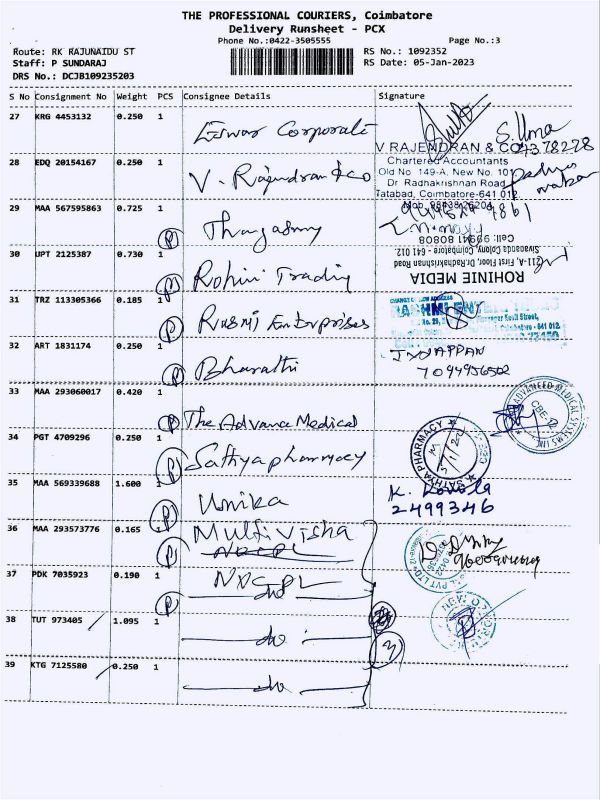 THE PROFESSIONAL COURIERS, Coimbatore
Delivery Runsheet - PCX
Phone No.:0422-3505555
Page No.:3
Route: RK RAJUNAIDU ST
Staff: P SUNDARAJ
DRS No.: DCJB109235203
RS No.: 1092352
RS Date: 05-Jan-2023
S No Consignment No Weight PCS Consignee Details Signature
27 KRG 4453132 0.250 1 Eswar Corporate
S. Uma
28 EDQ 20154167 0.250 1 V. Rajendran & co
V RAJENDRAN & CO
Chartered Accountants
Old No. 149-A, New No. 101
Dr Radhakrishnan Road
Tatabad, Coimbatore-641 012
29 MAA 567595863 0.725 1 Thangasamy
30 UPT 2125387 0.730 1 (P) Rohini Trading
ROHINIE MEDIA
211-A, First Floor, Dr.Radhakrishnan Road
Sivananda Colony, Coimbatore. 641 012
Cell: 99941 80808
31 TRZ 113305366 0.185 1 (P) Rasmi Enterprises
32 ART 1831174 0.250 1 (P) Bharathi
7094956502
33 MAA 293060017 0.420 1 (P) The Advance Medical
ADVANCED MEDICAL SYSTEMS INC
CBE
34 PGT 4709296 0.250 1 (P) Sathya pharmacy
SATHYA PHARMACY
35 MAA 569339688 1.600 1 (P) Unika
K.
2499346
36 MAA 293573776 0.165 1 (P) Multi Visha
37 PDK 7035923 0.190 1 (P) NDCPL
PVT LTD
38 TUT 973405 1.095 1 - do -
39 KTG 7125580 0.250 1 - do -
3